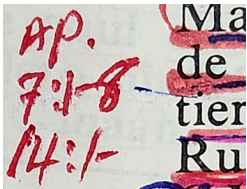 AP.
7:1-8-
14:1-
Ma
de
tier
Ru